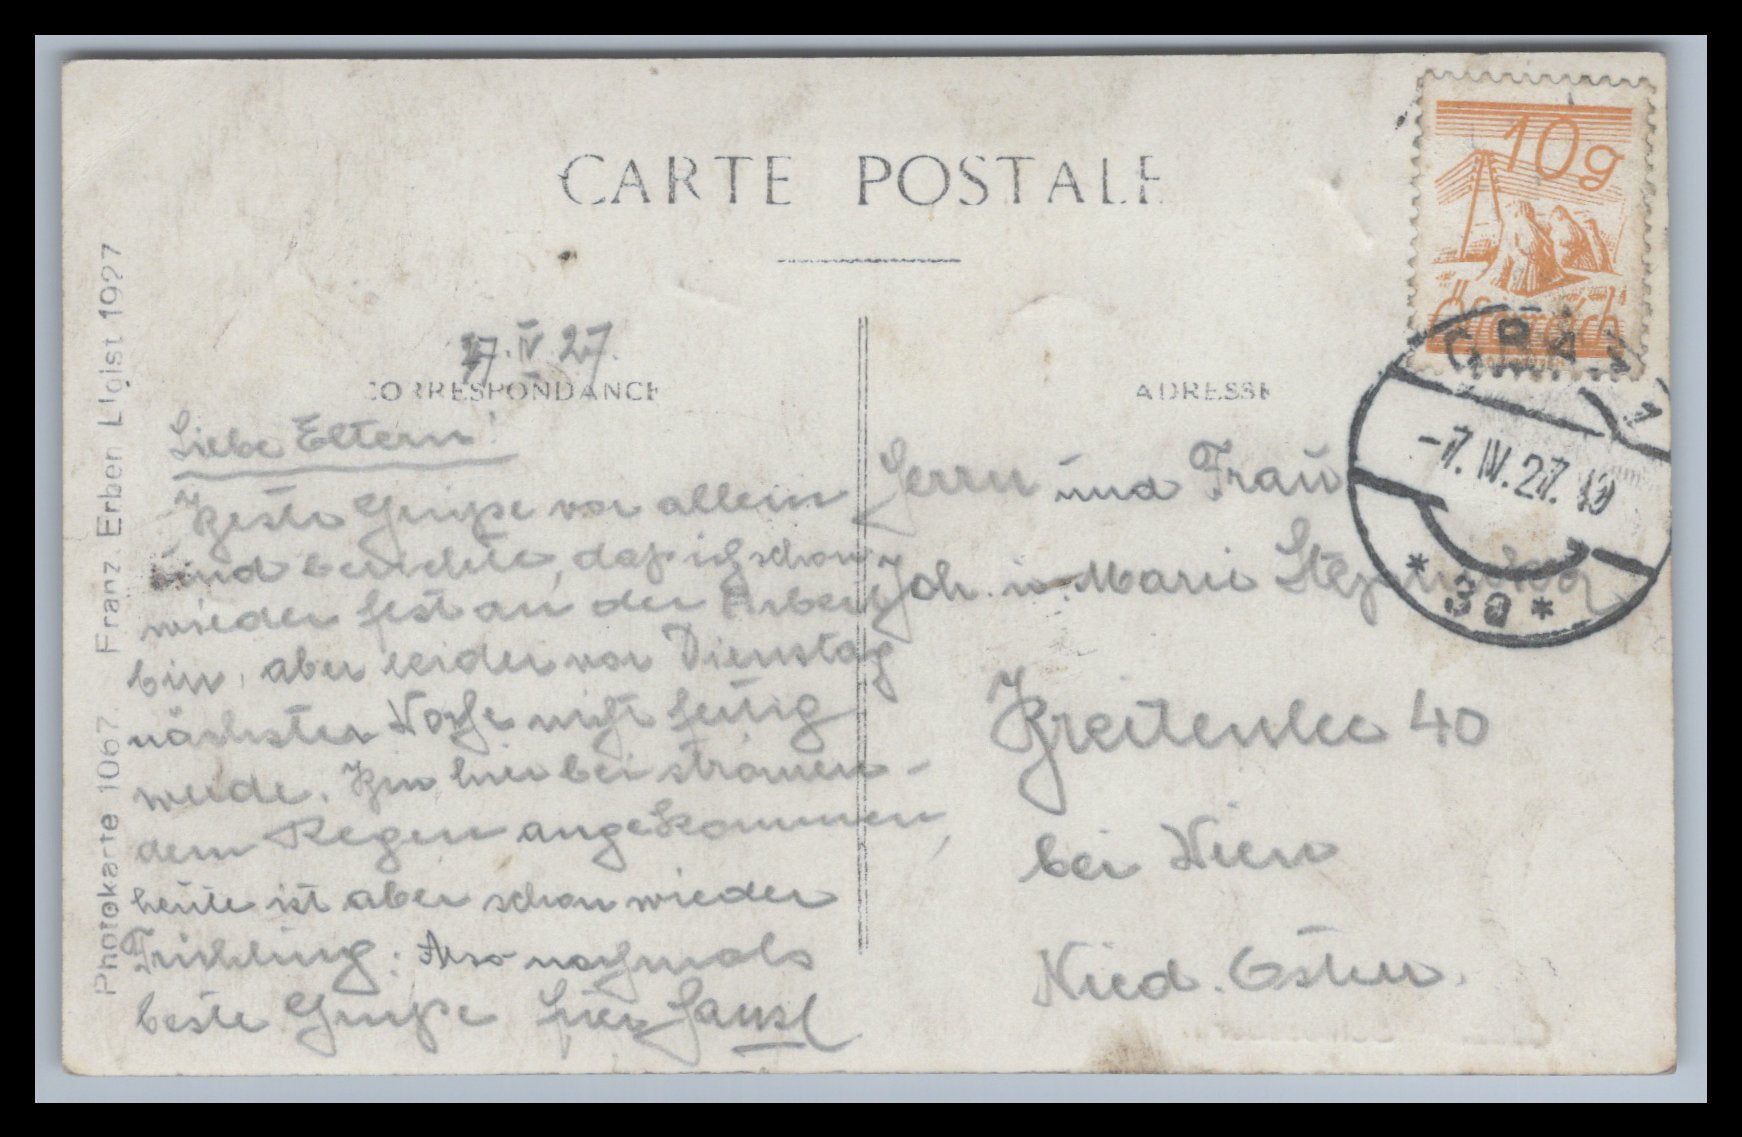 CARTE POSTALE
10g
Österreich
GRAZ 1
-7.IV.27. 19
* 3a *
Photokarte 1067 Franz Erben Ligist 1927
7.IV.27.
CORRESPONDANCE
ADRESSE
Liebe Eltern!
Beste Grüße vor allem
und berichte, daß ich schon
wieder fest an der Arbeit
bin, aber leider vor Dienstag
nächster Woche nicht fertig
werde. Bin hier bei strömen-
dem Regen angekommen,
heute ist aber schon wieder
Frühling. Also nochmals
beste Grüße Euer Hansl
Herrn und Frau
Joh. u. Marie
Breitenlee 40
bei Wien
Nied. Österr.